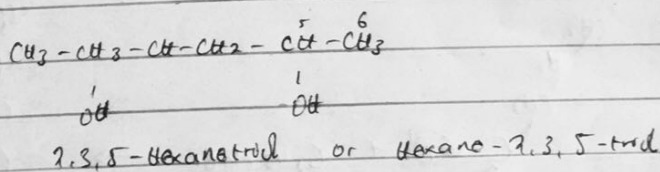 5 6
CH3 - CH3 - CH - CH2 - CH - CH3
OH OH
2,3,5-Hexanetriol or Hexane-2,3,5-triol